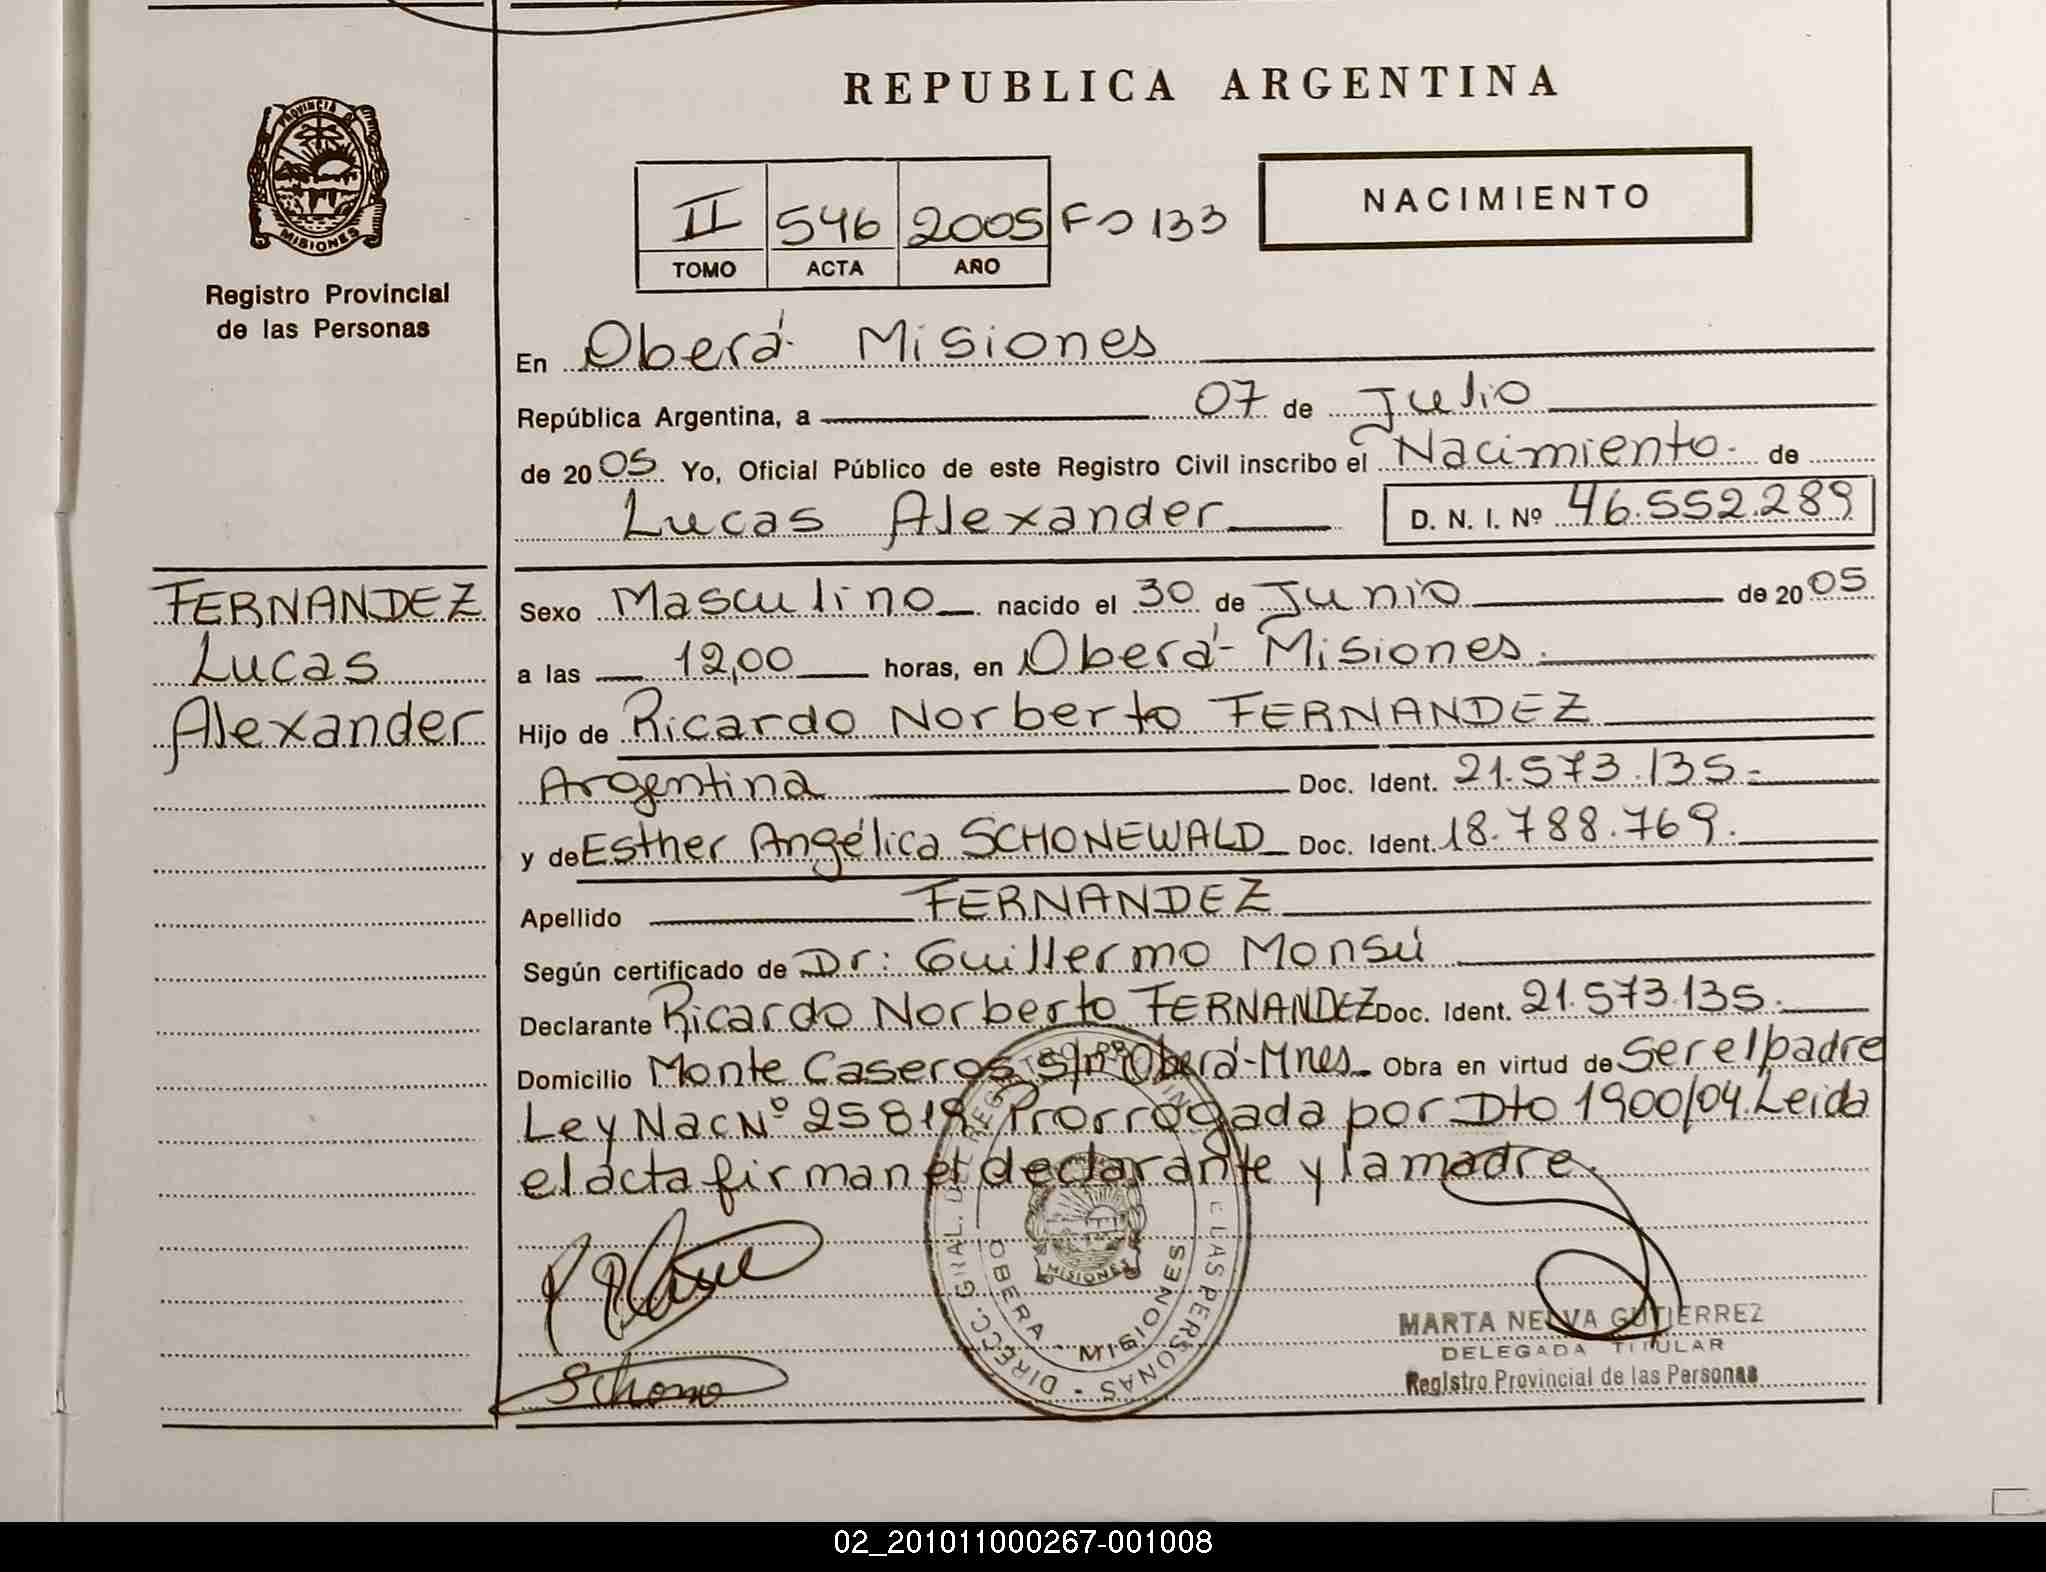 REPUBLICA ARGENTINA
PROVINCIA DE
MISIONES
Registro Provincial
de las Personas
NACIMIENTO
II 546 2005 Fº 133
TOMO ACTA AÑO
En Oberá- Misiones
República Argentina, a 07 de Julio
de 2005 Yo, Oficial Público de este Registro Civil inscribo el Nacimiento. de
Lucas Alexander D. N. I. Nº 46.552.289
FERNANDEZ
Lucas
Alexander
Sexo Masculino nacido el 30 de Junio de 2005
a las 12,00 horas, en Oberá- Misiones.
Hijo de Ricardo Norberto FERNANDEZ
Argentina Doc. Ident. 21.573.135.-
y de Esther Angélica SCHONEWALD Doc. Ident. 18.788.769.
Apellido FERNANDEZ
Según certificado de Dr: Guillermo Monsú
Declarante Ricardo Norberto FERNANDEZ Doc. Ident. 21.573.135.
Domicilio Monte Caseros s/n Oberá-Mnes. Obra en virtud de Ser el padre
Ley Nac Nº 25819. Prorrogada por Dto 1900/04. Leida
el acta firman el declarante y la madre.
DIRECC. GRAL. DEL REGISTRO PROVINCIAL DE LAS PERSONAS -
OBERA - MISIONES
MISIONES
MARTA NELVA GUTIERREZ
DELEGADA TITULAR
Registro Provincial de las Personas
02_201011000267-001008